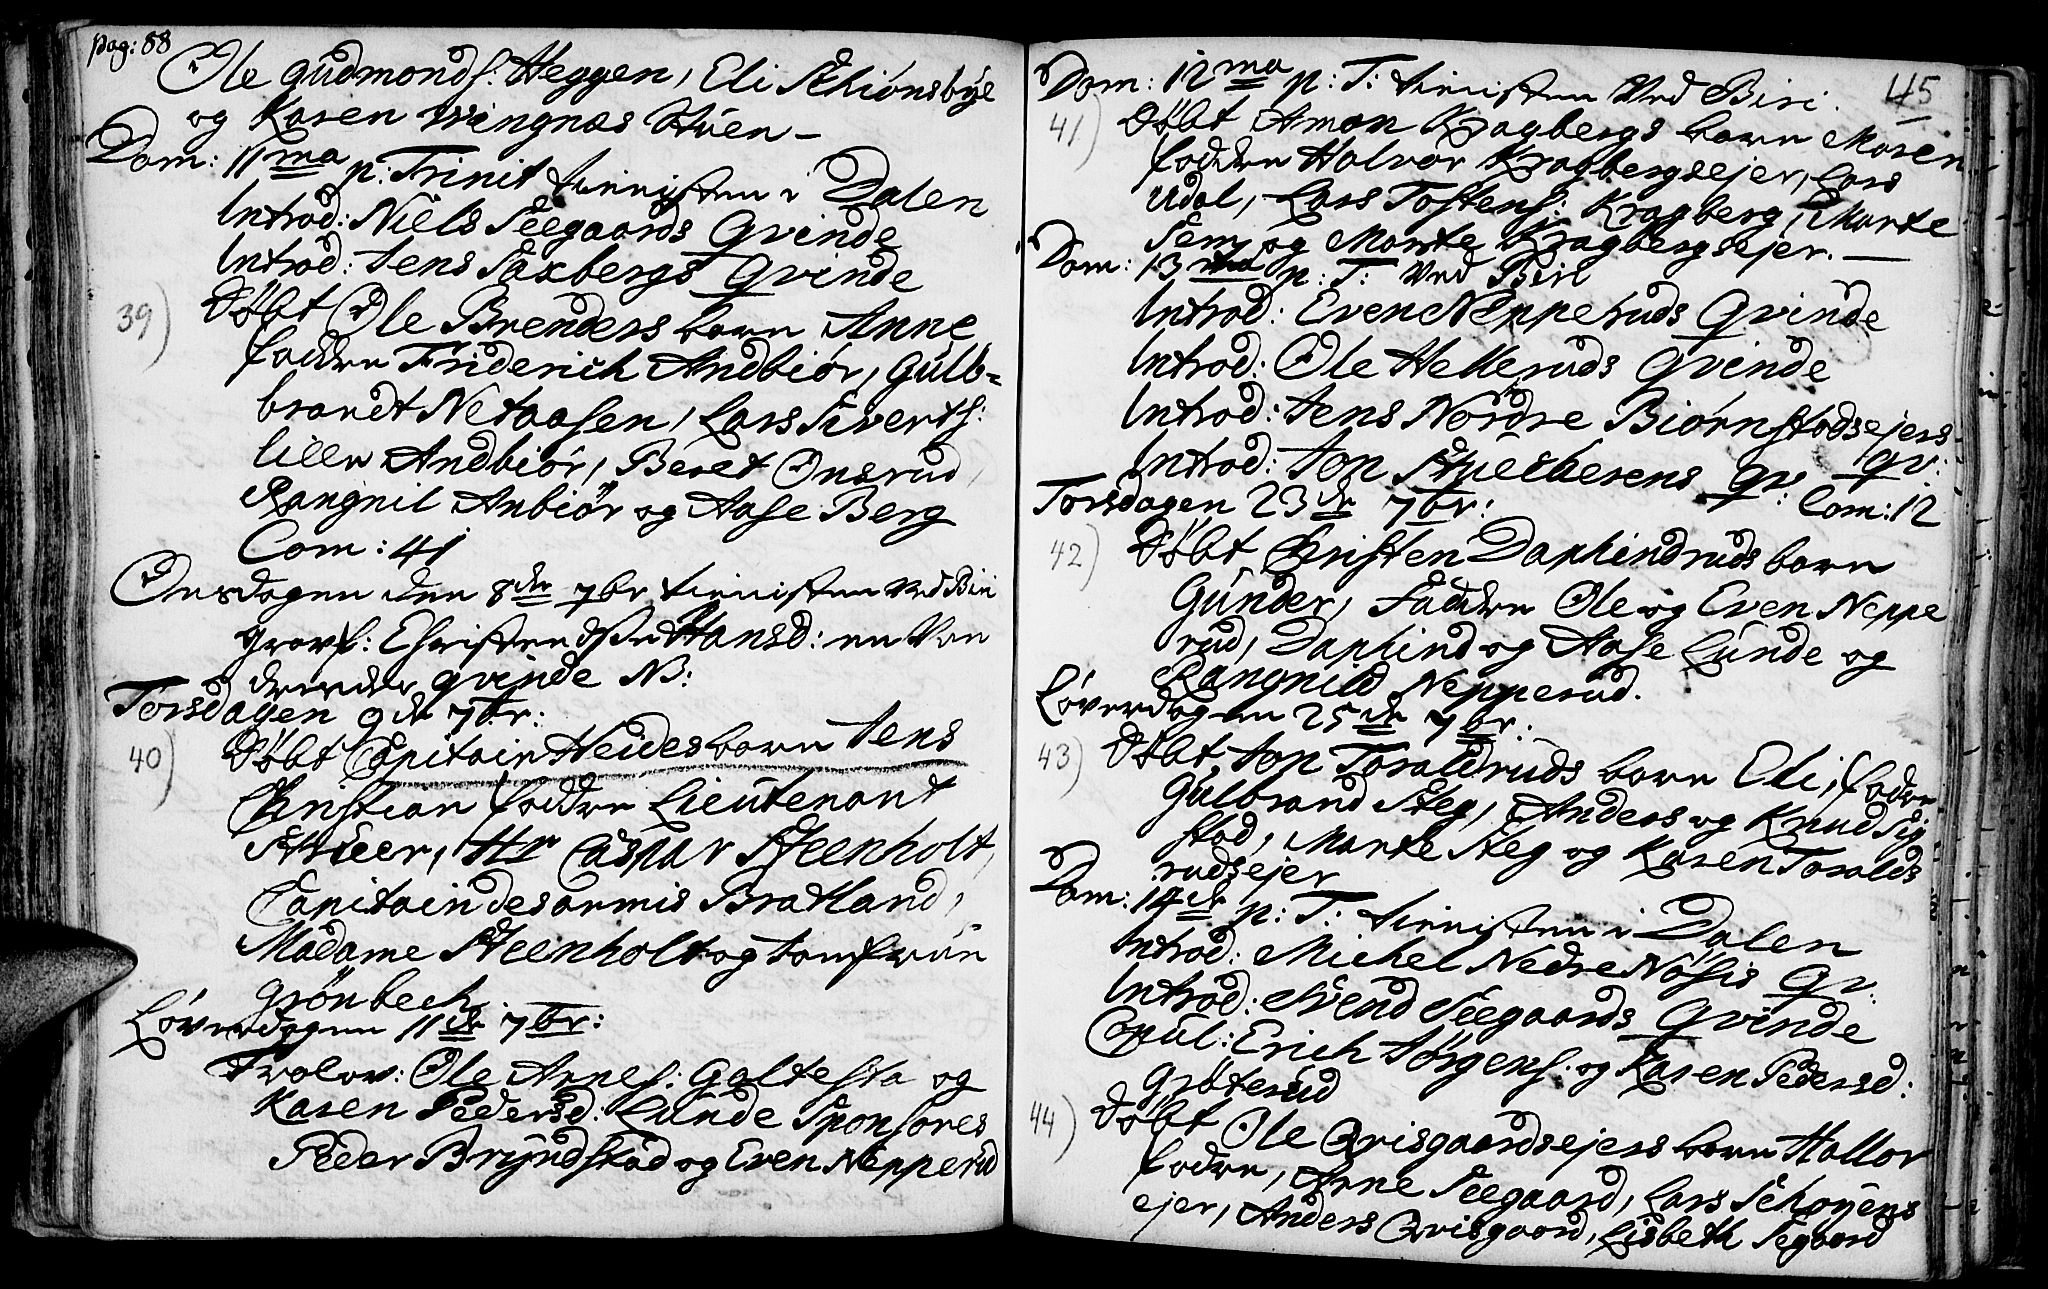 pag: 88
Ole Gudmonds: Heggen, Eli Schiønsbye
og Karen Wingnæs Huen –
Dom: 11ma p: Trinit tienisten i Dalen
Introd: Niels Seegaards Qvinde
Introd: Jens Saxbergs Qvinde
39) Døbt Ole Brenders barn Anne
faddre Friderich Andbiør, Gulb=
brandt Netaasen, Lars Siverts:
lille Andbiør, Beret Onsrud,
Rangnil Anbiør og Aase Berg
Com: 41
Onsdagen den 8de 7br tienisten Ved Biri
Hansd: en Van
drende qvinde NB:
Torsdagen 9de 7br:
40) Døbt Capitain Heides barn Jens
Christian faddre Lieutenant
Stüeer, Hr Caspar Steenholt,
Capitain des armis Bratland,
Madame Steenholt og Jomfrue
Grönbech.
Løverdagen 11de 7br:
Trolov: Ole Arnes: Galtesta og
Karen Pedersd: Lunde Sponsores
Peder Bryndstad og Even Nepperud
45
Dom: 12ma p: T: tienisten Ved Biri.
41) Døbt Amon Kragbergs barn Maren
faddre Halvor Kragbergsejer, Lars
Udal, Lars Tostens: Kragberg, Marte
Sem og Marte Kragbergsejer. –
Dom: 13ma p: T: Ved Biri
Introd: Even Nepperuds Qvinde
Introd: Ole Helleruds Qvinde
Introd: Jens Nordre Biørnstadsejers
qv:
Introd: Jon Stuesbersens qv: Com: 12
Torsdagen 23de 7br:
42) Døbt Christen Daphindruds barn
Gunder, Faddre Ole og Even Neppe
rud, Daphind og Aase Lunde og
Rangnild Nepperud.
Løverdagen 25de 7br:
43) Døbt Jon Toraldruds barn Eli, fadre
Gulbrand Steg, Anders og Knud Sig
stad, Marte Steg og Karen Toralds
rudsejer
Dom: 14de p: T: tienisten i Dalen
Introd: Michel Nedre Nøsis Qv:
Introd: Svend Seegaards Qvinde
Copul: Erich Jørgens: og Karen Pedersd:
Grøterud
44) Døbt Ole Qvisgaardsejers barn Hallor
fadre, Arne Seegaard, Lars Schøyens
ejer, Anders Qvisgaard, Lisbeth Segaard